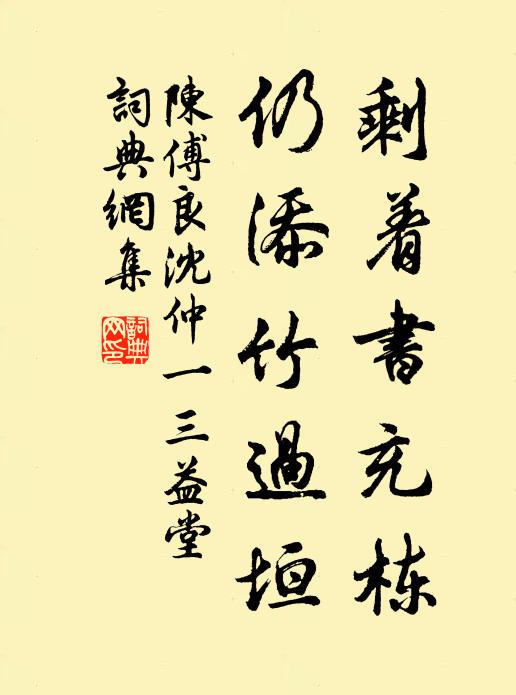 剩着書充棟
仍添竹過垣
陳傅良沈仲一三益堂
詞典網集
詞典網印